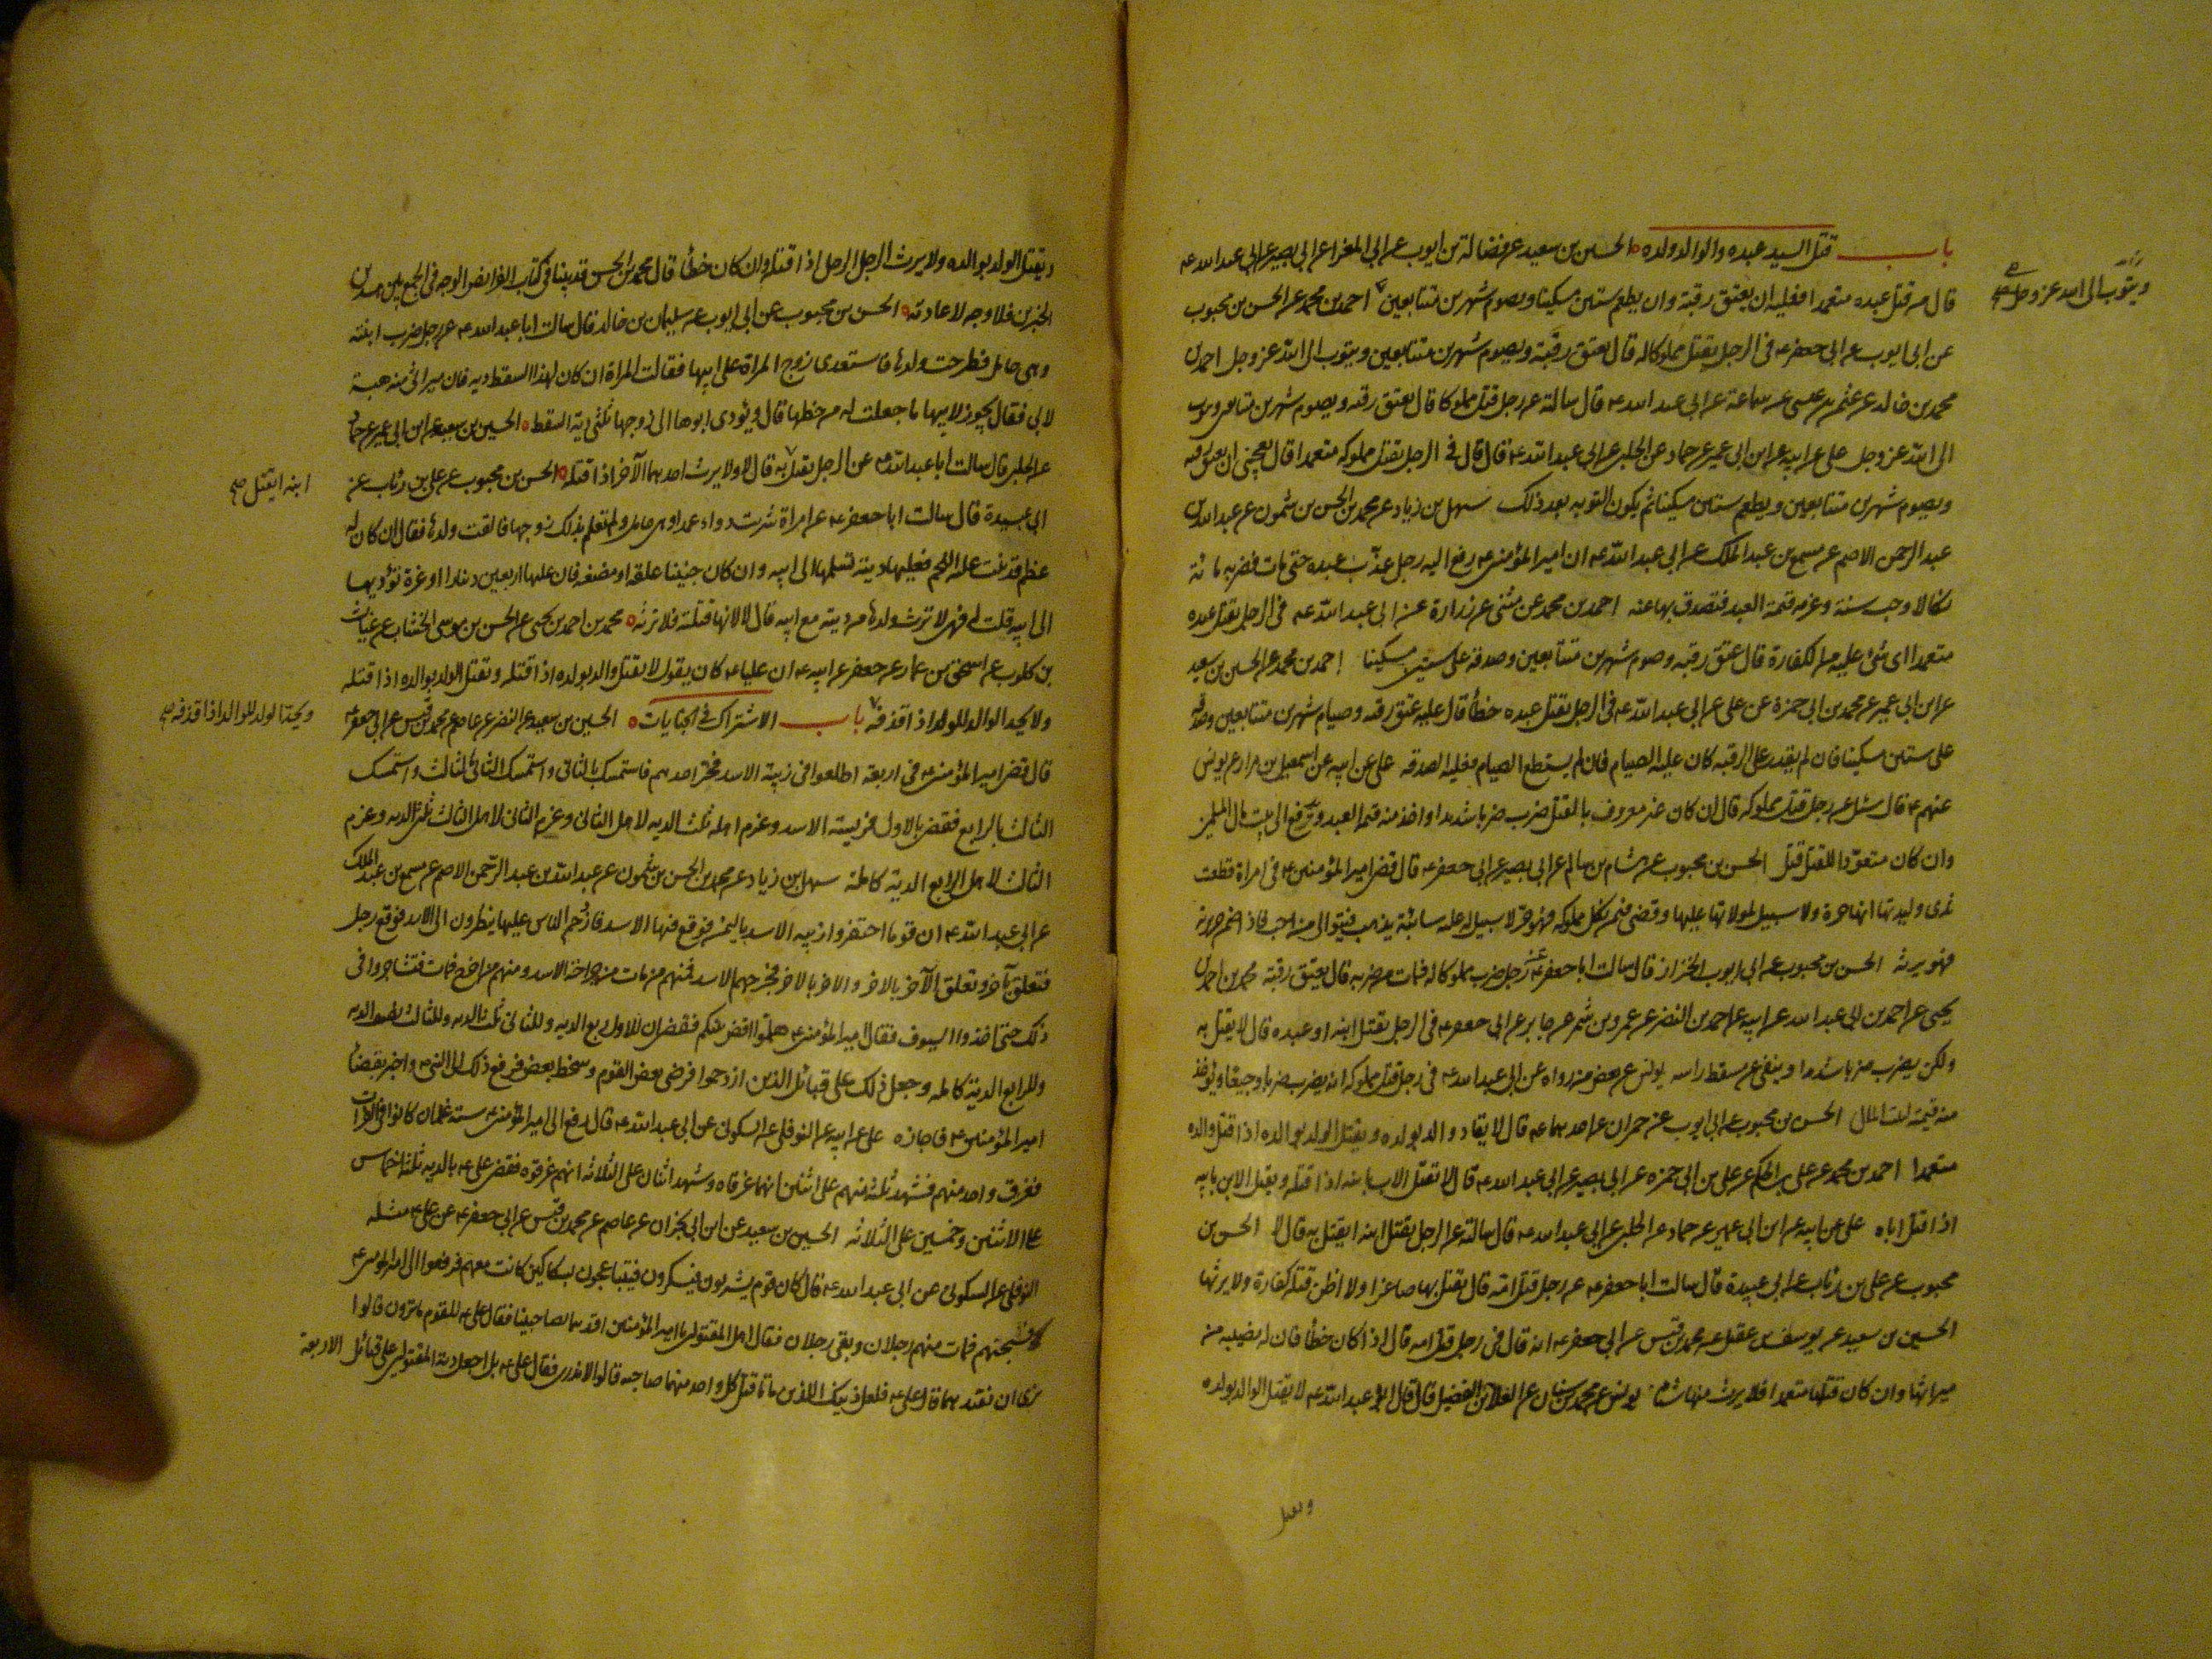 باب قتل السيد عبده والوالد ولده الحسين بن سعيد عن فضالة بن ايوب عن ابي المغرا عن ابي بصير عن ابي عبد الله ع
قال من قتل عبده متعمدا فعليه ان يعتق رقبة وان يطعم ستين مسكينا ويصوم شهرين متتابعين احمد بن محمد عن الحسن بن محبوب
ويتوب الى الله عز وجل صح
عن ابي ايوب عن ابي جعفر ع في الرجل يقتل مملوكا له قال يعتق رقبة ويصوم شهرين متتابعين ويتوب الى الله عز وجل احمد بن
محمد بن خالد عن عثمن بن عيسى عن سماعة عن ابي عبد الله ع قال سالته عن رجل قتل مملوكا قال يعتق رقبه ويصوم شهرين متتابعين ويتوب
الى الله عز وجل على عن ابيه عن ابن ابي عمير عن حماد عن الحلبي عن ابي عبد الله ع قال قال في الرجل يقتل مملوكه متعمدا قال يعجبني ان يعتق رقبه
ويصوم شهرين متتابعين ويطعم ستين مسكينا ثم يكون التوبه بعد ذلك سهل بن زياد عن محمد بن الحسن بن شمون عن عبد الله بن
عبد الرحمن الاصم عن مسمع بن عبد الملك عن ابي عبد الله ع ان امير المؤمنين ع رفع اليه رجل عذب عبده حتى مات فضربه مائة
نكالا وحبسه سنة وغرمه قيمة العبد فتصدق بها عنه احمد بن محمد عن مثنى عن زرارة عن ابي عبد الله ع في الرجل يقتل عبده
متعمدا اى شئ عليه من الكفارة قال عتق رقبه وصوم شهرين متتابعين وصدقه على ستين مسكينا احمد بن محمد عن الحسين بن سعيد
عن ابن ابي عمير عن محمد بن ابي حمزة عن على عن ابي عبد الله ع في الرجل يقتل عبده خطأ قال عليه عتق رقبه وصيام شهرين متتابعين وصدقه
على ستين مسكينا فان لم يقدر على الرقبه كان عليه الصيام فان لم يستطع الصيام فعليه الصدقه على عن ابيه عن اسمعيل بن مرار عن يونس
عنهم ع قال سئل عن رجل قتل مملوكه قال ان كان غير معروف بالقتل ضرب ضربا شديدا واخذ منه قيمة العبد وتدفع الى بيت مال المسلمين
وان كان متعودا للقتل قتل الحسن بن محبوب عن هشام بن سالم عن ابي بصير عن ابي جعفر ع قال قضى امير المؤمنين ع في امراة قطعت
ثدى وليدتها انها حرة ولا سبيل لمولاتها عليها وقضى فيمن نكل بمملوكه فهو حر لا سبيل له عليه سائبة يذهب فيتولى من احب فاذا ضمن جريرته
فهو يرثه الحسن بن محبوب عن ابي ايوب الخزاز قال سالت ابا جعفر ع عن رجل ضرب مملوكا له فمات من ضربه قال يعتق رقبة محمد بن احمد بن
يحيى عن احمد بن ابي عبد الله عن ابيه عن احمد بن النضر عن عمرو بن شمر عن جابر عن ابي جعفر ع في الرجل يقتل ابنه او عبده قال لا يقتل به
ولكن يضرب ضربا شديدا وينفى عن مسقط راسه يونس عن بعض من رواه عن ابي عبد الله ع في رجل قتل مملوكه انه يضرب ضربا وجيعا ويؤخذ
منه قيمته لبيت المال الحسن بن محبوب عن ابي ايوب عن حمران عن احدهما ع قال لا يقاد والد بولده ويقتل الولد بوالده اذا قتل والده
متعمدا احمد بن محمد عن على بن الحكم عن على بن ابي حمزه عن ابي بصير عن ابي عبد الله ع قال لا تقتل الاب بابنه اذا قتله ويقتل الابن بابيه
اذا قتل اباه على عن ابيه عن ابن ابي عمير عن حماد عن الحلبي عن ابي عبد الله ع قال سالته عن الرجل يقتل ابنه ايقتل به قال لا الحسن بن
محبوب عن على بن رئاب عن ابي عبيدة قال سالت ابا جعفر ع عن رجل قتل امه قال يقتل بها صاغرا ولا اظن قتله كفارة ولا يرثها
الحسين بن سعيد عن يوسف بن عقيل عن محمد بن قيس عن ابي جعفر ع انه قال في رجل قتل امه قال اذا كان خطأ فان له نصيبه من
ميراثها وان كان قتلها متعمدا فلا يرث منها شيئا يونس عن محمد بن سنان عن العلا بن الفضيل قال قال ابو عبد الله ع لا يقتل الوالد بولده
ويقتل
ويقتل الولد بوالده ولا يرث الرجل الرجل اذا قتله وان كان خطأ قال محمد بن الحسن قد بينا في كتاب الفرائض الوجه في الجمع بين هذين
الخبرين فلا وجه لاعادته الحسن بن محبوب عن ابي ايوب عن سليمان بن خالد قال سالت ابا عبد الله ع عن رجل ضرب ابنته
وهي حامل فطرحت ولدها فاستعدى زوج المراة على ابيها فقالت المراة ان كان لهذا السقط ديه فان ميراثي منه هبة
لابي فقال يجوز لابيها ما جعلت له من حظها قال ويؤدى ابوها الى زوجها ثلثي دية السقط الحسين بن سعيد عن ابن ابي عمير عن حماد
عن الحلبي قال سالت ابا عبد الله ع عن الرجل يقتل به قال لا ولا يرث احدهما الآخر اذا قتله الحسن بن محبوب عن على بن رئاب عن
ابنه ايقتل صح
ابي عبيدة قال سالت ابا جعفر ع عن امراة شربت دواء عمدا وهى حامل ولم تعلم بذلك زوجها فالقت ولدها فقال ان كان له
عظم قد نبت عليه اللحم فعليها ديته تسلمها الى ابيه وان كان جنينا علقه او مضغه فان عليها اربعين دينارا او غرة تؤديها
الى ابيه قلت له فهى لا ترث ولدها من ديته مع ابيه قال لا لانها قتلته فلا ترثه محمد بن احمد بن يحيى عن الحسن بن موسى الخشاب عن غياث
بن كلوب عن اسحق بن عمار عن جعفر عن ابيه ع ان عليا ع كان يقول لا يقتل والد بولده اذا قتله ويقتل الولد بوالده اذا قتله
ولا يحد الوالد للولد اذا قذفه باب الاشتراك في الجنايات الحسين بن سعيد عن النضر عن عاصم عن محمد بن قيس عن ابي جعفر ع
ويحد الولد للوالد اذا قذفه صح
قال قضى امير المؤمنين ع في اربعة اطلعوا في زبية الاسد فخر احدهم فاستمسك بالثاني واستمسك الثاني بالثالث واستمسك
الثالث بالرابع فقضى بالاول فريسة الاسد وغرم اهله ثلث الديه لاهل الثاني وغرم الثاني لاهل الثالث ثلثى الديه وغرم
الثالث لاهل الرابع الدية كاملة سهل بن زياد عن محمد بن الحسن بن شمون عن عبد الله بن عبد الرحمن الاصم عن مسمع بن عبد الملك
عن ابي عبد الله ع ان قوما احتفروا زبية الاسد باليمن فوقع فيها الاسد فازدحم الناس عليها ينظرون الى الاسد فوقع رجل
فتعلق بآخر وتعلق الآخر بالاخر والاخر بالاخر فجرحهم الاسد فمنهم من مات من جراحة الاسد ومنهم من اخرج فمات فتشاجروا في
ذلك حتى اخذوا السيوف فقال امير المؤمنين ع هلموا اقض بينكم فقضى ان للاول ربع الديه وللثاني ثلث الديه وللثالث نصف الديه
وللرابع الدية كامله وجعل ذلك على قبائل الذين ازدحموا فرضى بعض القوم وسخط بعض فرفع ذلك الى النبي ع واخبر بقضاء
امير المؤمنين ع فاجازه على عن ابيه عن النوفلي عن السكوني عن ابي عبد الله ع قال رفع الى امير المؤمنين ع ستة غلمان كانوا في الفرات
فغرق واحد منهم فشهد ثلثة منهم على اثنين انهما غرقاه وشهد اثنان على الثلاثه انهم غرقوه فقضى على ع بالديه ثلثة اخماس
على الاثنين وخمسين على الثلاثه الحسين بن سعيد عن ابن ابي نجران عن عاصم عن محمد بن قيس عن ابي جعفر ع عن على ع مثله
النوفلي عن السكوني عن ابي عبد الله ع قال كان قوم يشربون فيسكرون فيتباعجون بسكاكين كانت معهم فرفعوا الى امير المؤمنين ع
فسجنهم فمات منهم رجلان وبقى رجلان فقال اهل المقتولين يا امير المؤمنين اقدهما بصاحبينا فقال على ع للقوم ما ترون قالوا
نرى ان تقيدهما قال على ع فلعل ذينك اللذين ماتا قتل كل واحد منهما صاحبه قالوا لا ندرى فقال على ع بل اجعل دية المقتولين على قبائل الاربعة